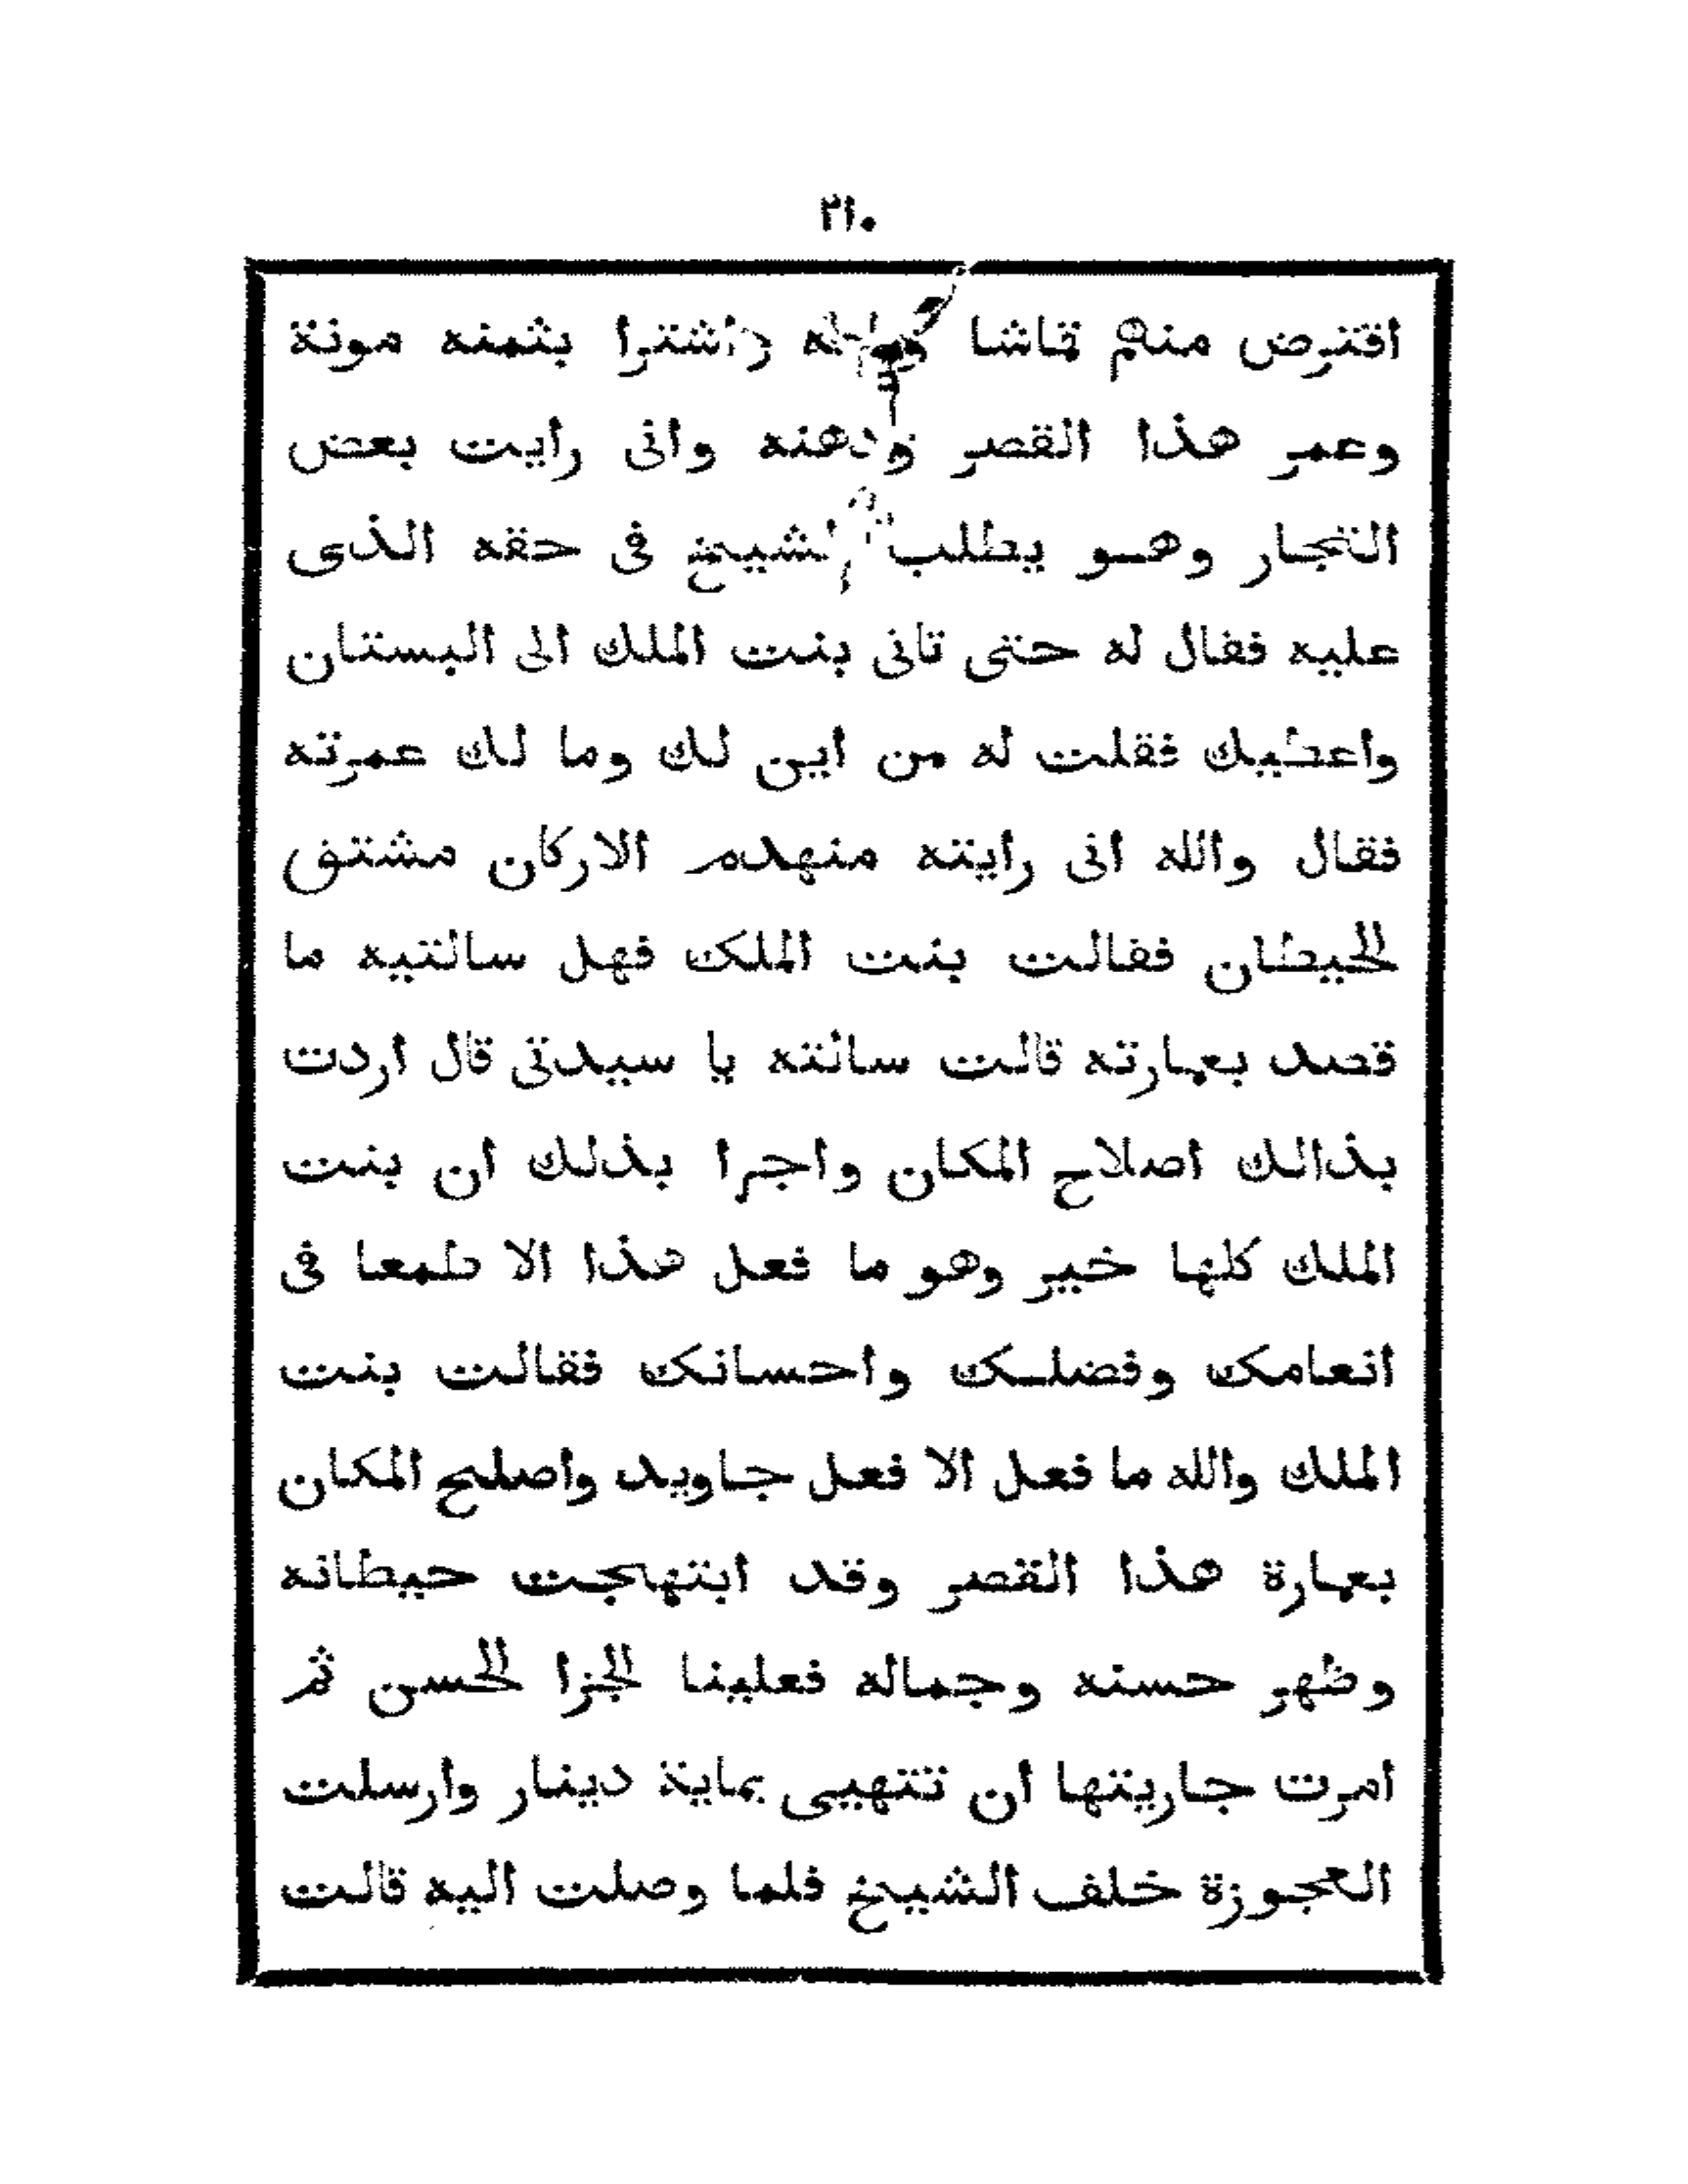 ٢١٠
اقترض منهم قماشا وباعه واشترا بثمنه مونة
وعمر هذا القصر ودهنه وانى رايت بعض
التجار وهو يطلب الشيخ فى حقه الذى
عليه فقال له حتى تاتى بنت الملك الى البستان
واعطيك فقلت له من اين لك وما لك عمرته
فقال والله انى رايته منهدم الاركان مشتق
الحيطان فقالت بنت الملك فهل سالتيه ما
قصد بعمارته قالت سالته يا سيدتى قال اردت
بذالك اصلاح المكان واجرا بذلك ان بنت
الملك كلها خير وهو ما فعل هذا الا طمعا فى
انعامك وفضلك واحسانك فقالت بنت
الملك والله ما فعل الا فعل جاويد واصلح المكان
بعمارة هذا القصر وقد ابتهجت حيطانه
وظهر حسنه وجماله فعلينا الجزا الحسن ثم
امرت جاريتها ان تتهيى بماية دينار وارسلت
العجوزة خلف الشيخ فلما وصلت اليه قالت